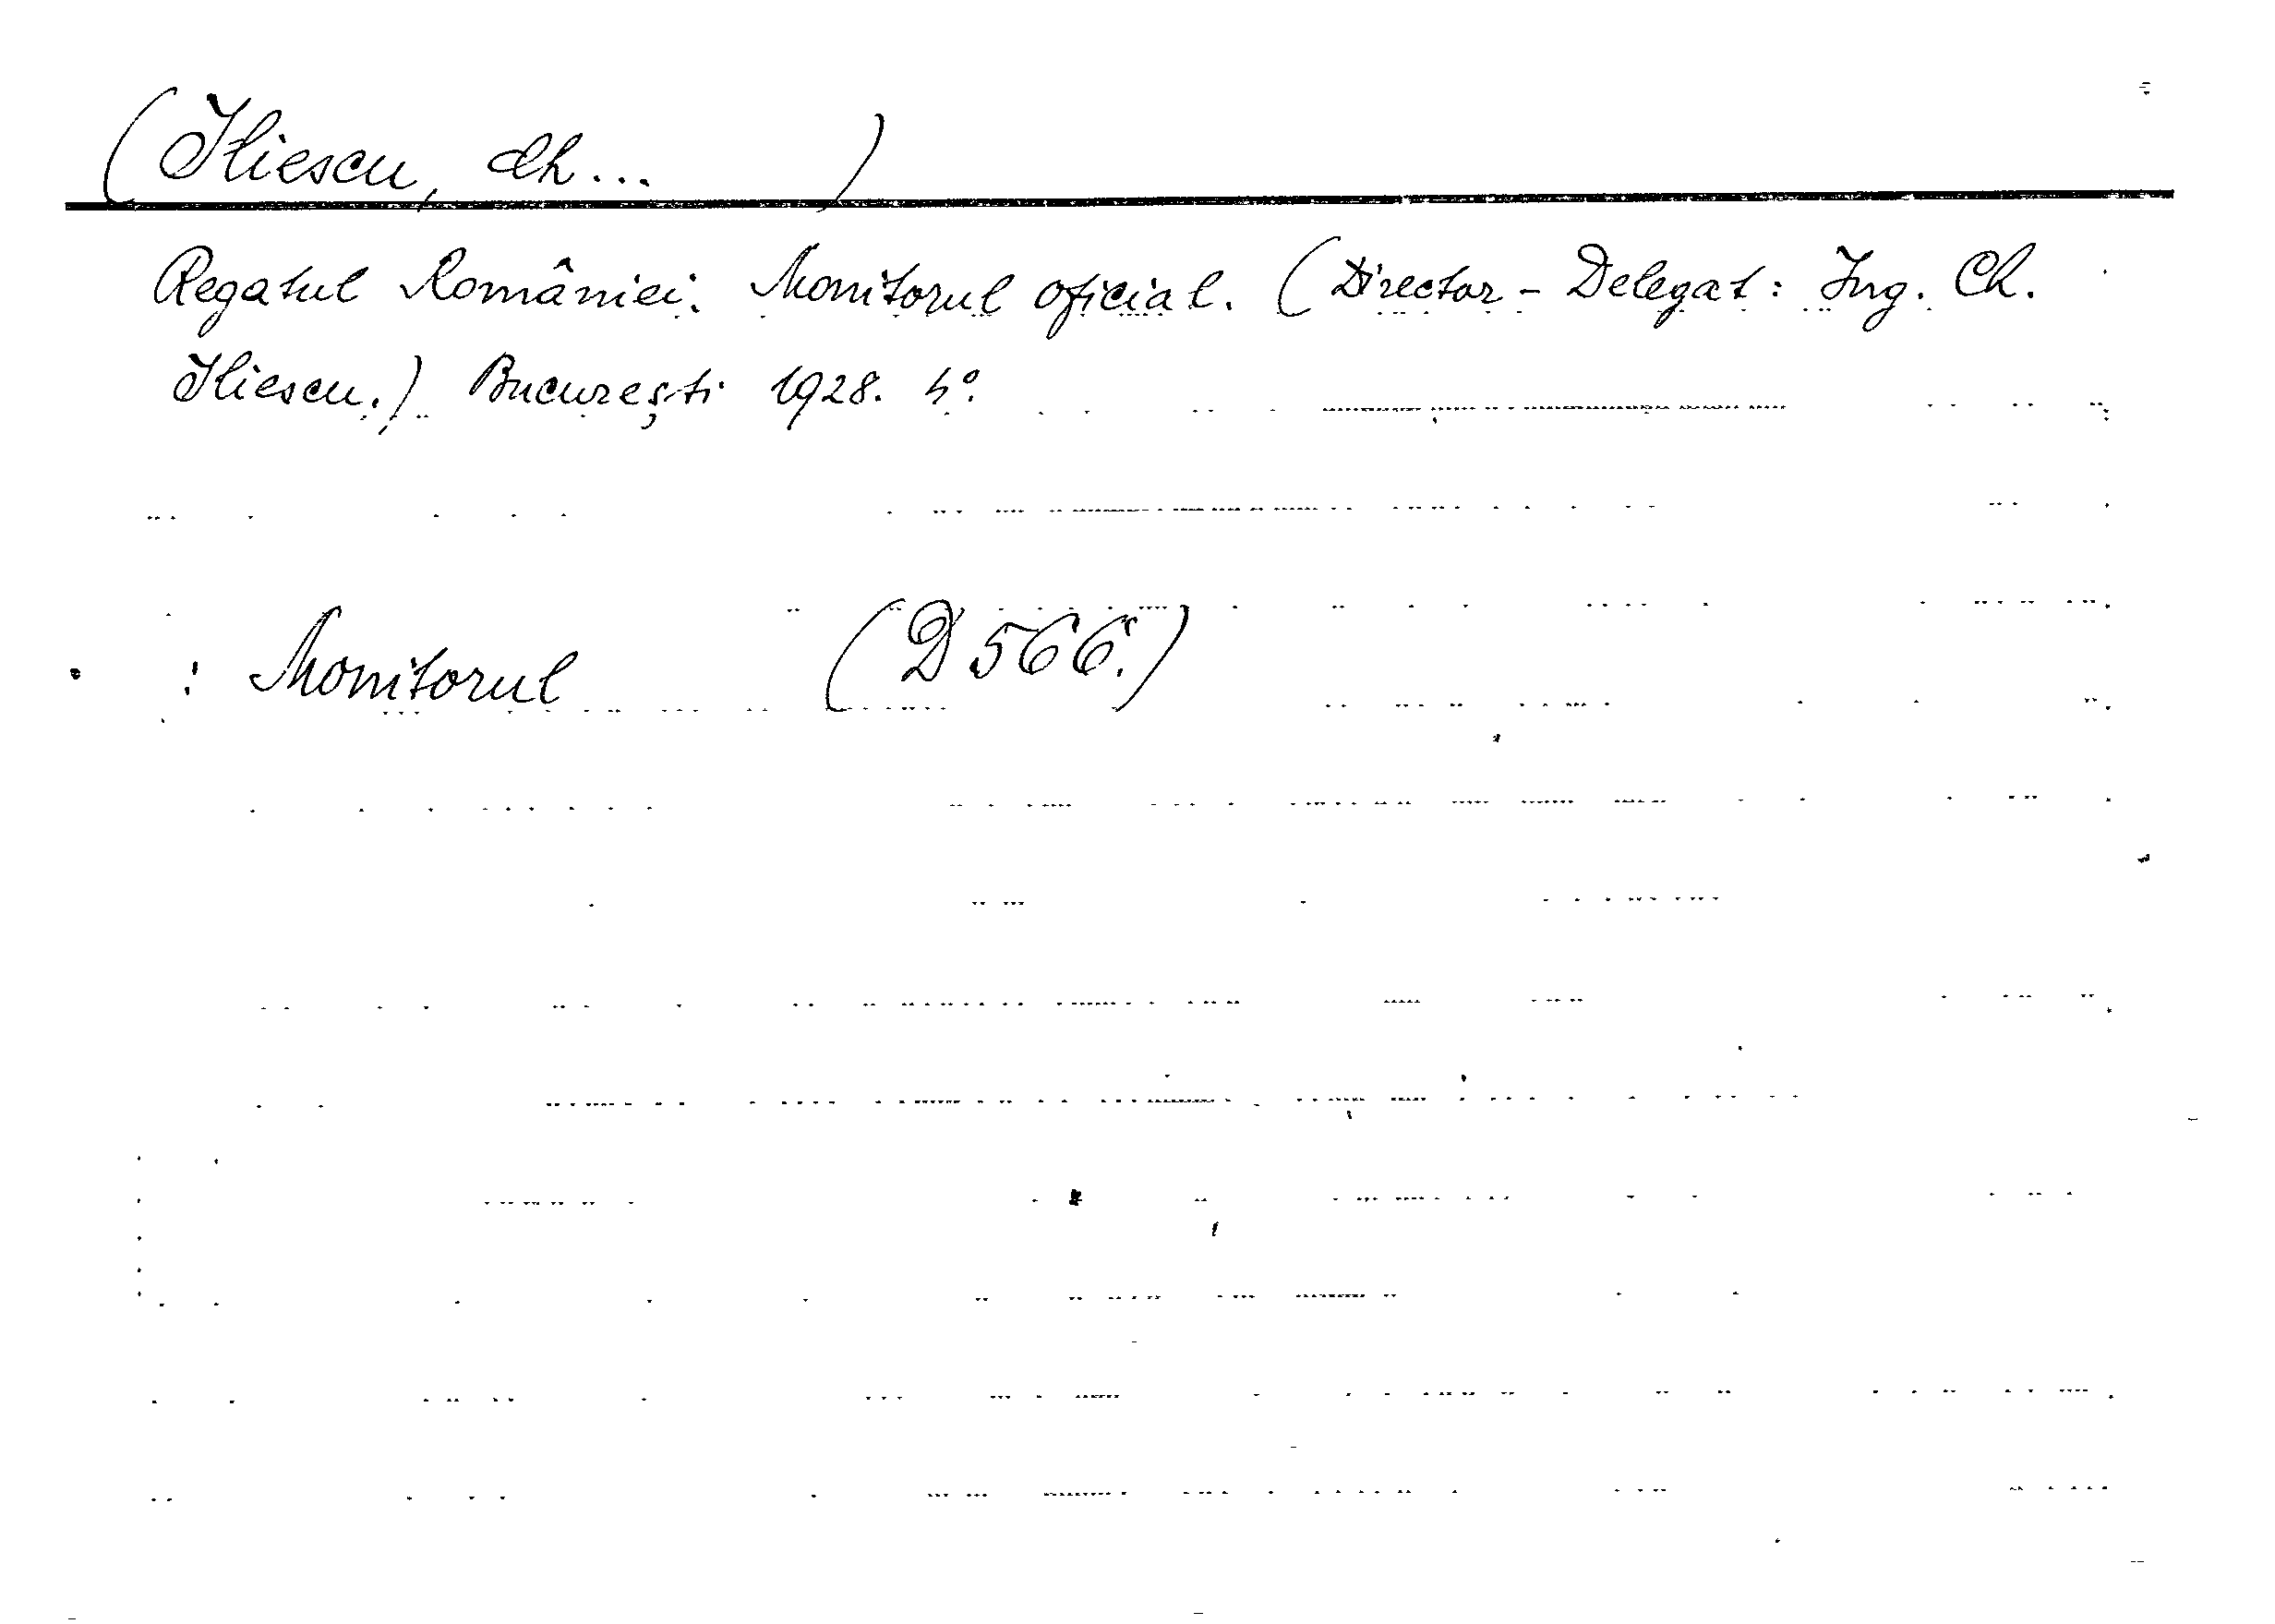 (Iliescu, Ch... )
Regatul României. Monitorul oficial. (Director-Delegat: Ing. Ch.
Iliescu.) București 1928. 4°.
: Monitorul (D 566.)